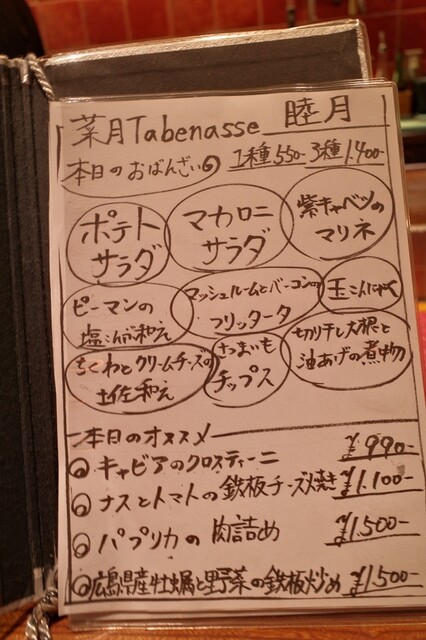 菜月Tabenasse 睦月
本日のおばんざい 1種550- 3種1.400-
ポテト
サラダ
マカロニ
サラダ
紫キャベツの
マリネ
ピーマンの
塩こんぶ和え
マッシュルームとベーコンの
フリッタータ
玉こんにゃく
ちくわとクリームチーズの
土佐和え
さつまいも
チップス
切り干し大根と
油あげの煮物
本日のオススメ
キャビアのクロスティーニ ¥990-
ナスとトマトの鉄板チーズ焼き ¥1.100-
パプリカの肉詰め ¥1.500-
広島県産牡蠣と野菜の鉄板炒め ¥1.500-